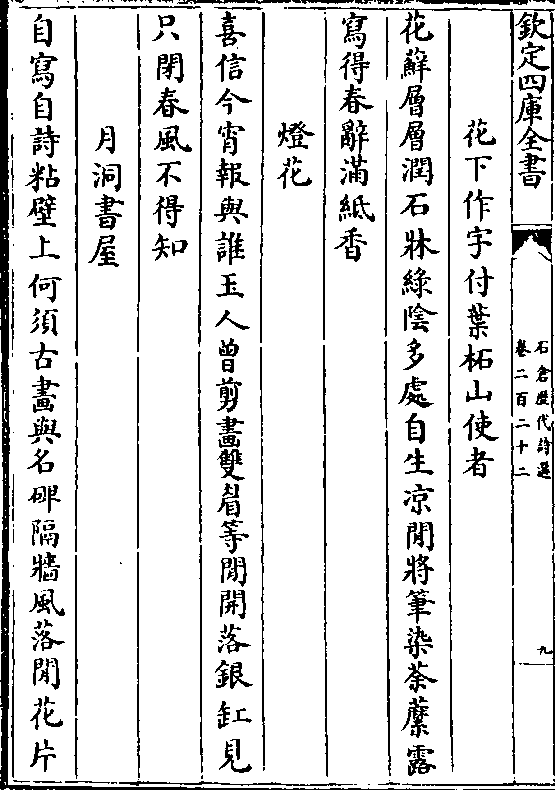 欽定四庫全書
石倉歷代詩選
卷二百二十二
九
花下作字付葉柘山使者
花蘚層層潤石牀綠陰多處自生凉閒將筆染荼蘼露
寫得春辭滿紙香
燈花
喜信今宵報與誰玉人曾剪畫雙眉等閒開落銀缸見
只閉春風不得知
月洞書屋
自寫自詩粘壁上何須古畫與名碑隔牆風落閒花片